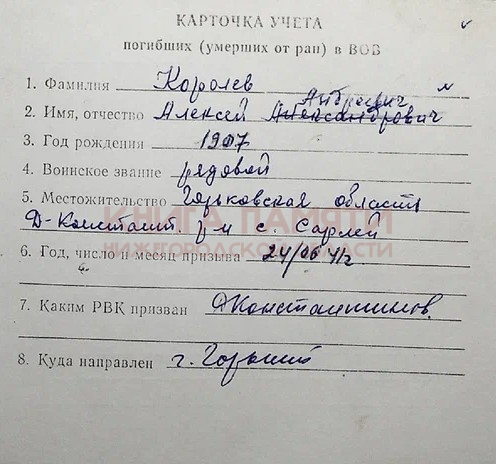 КАРТОЧКА УЧЕТА
погибших (умерших от ран) в ВОВ
1. Фамилия Королев
Андреевич
2. Имя, отчество Алексей Александрович
3. Год рождения 1907
4. Воинское звание рядовой
5. Местожительство Горьковская область
КНИГА ПАМЯТИ
Д-Констант. р-н с. Сарлей
НИЖЕГОРОДСКОЙ ОБЛАСТИ
6. Год, число и месяц призыва 24/06 41г
7. Каким РВК призван Д Константинов.
8. Куда направлен г. Горький